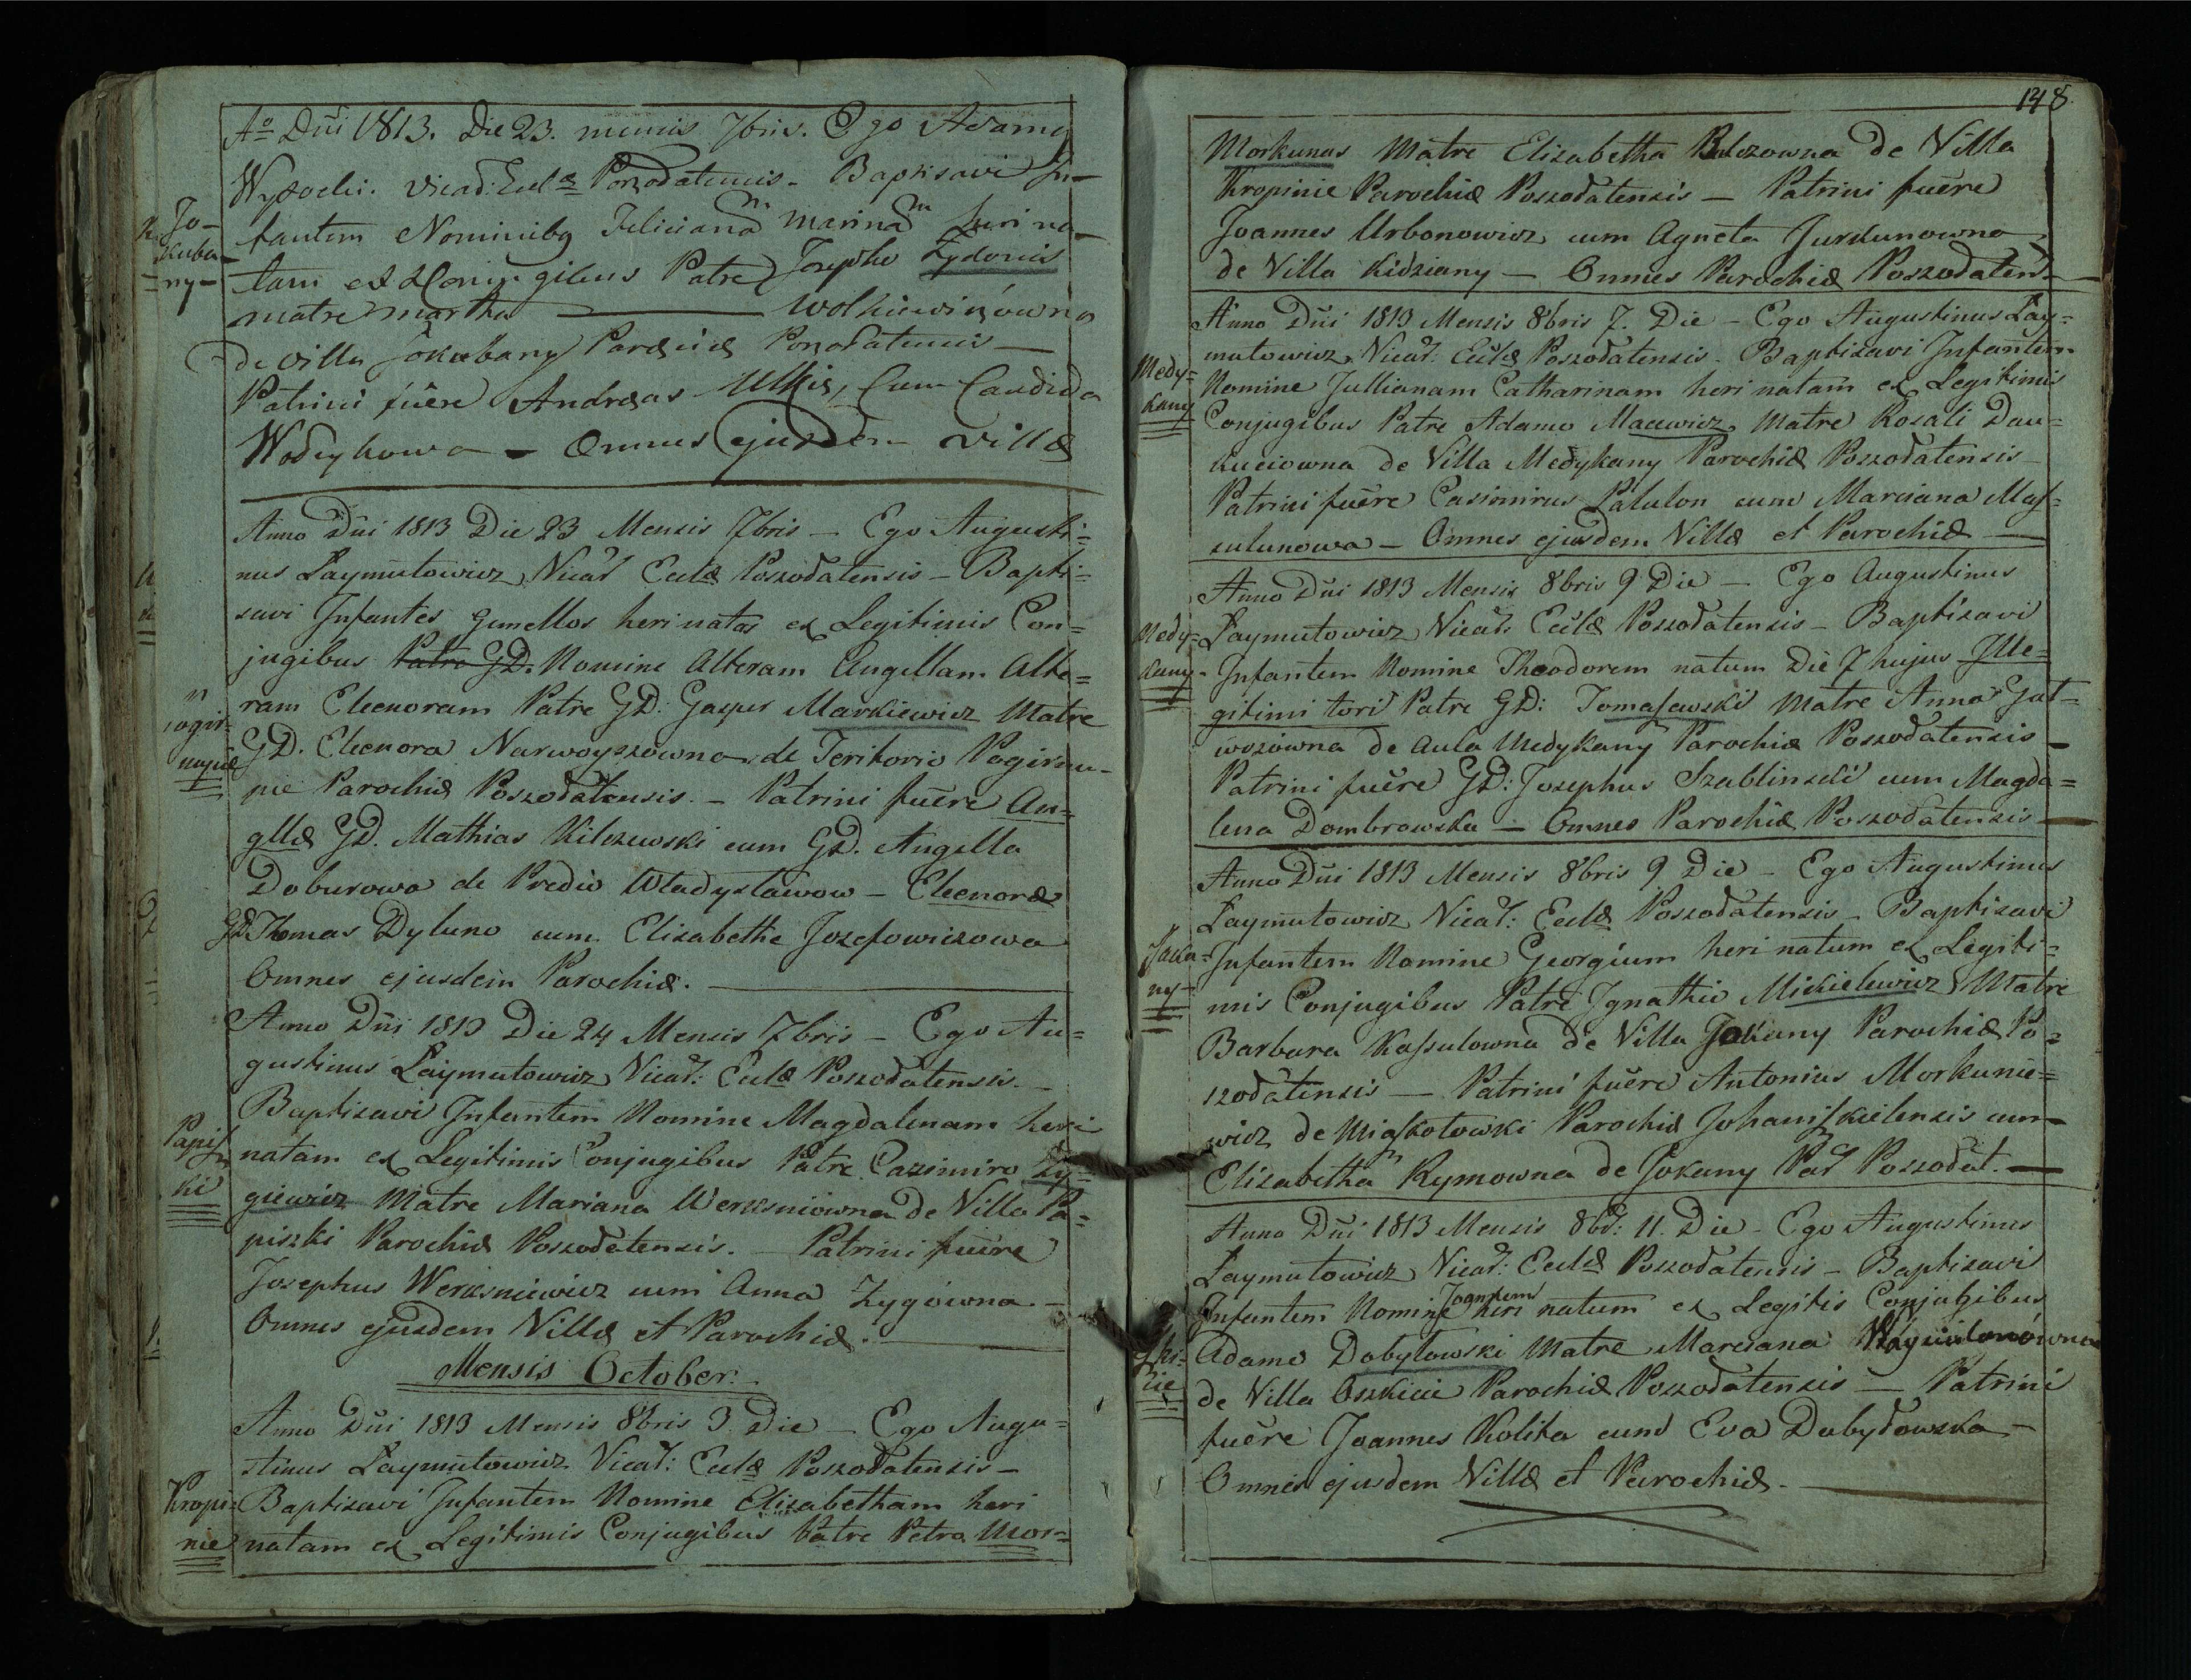 Aō Dñi 1813. Die 23. mensis 7bris. Ego Adamg
Wysocki. Vicaŕ: Eccłæ Poszodatensis. Baptisavi In-
Jo-
kuba-
ny-
fantem Nominibg Felicianam Marinam heri na-
tam ex Conjugibus Patre Josepho Zydonis
matre Martha — Wolkiewiczówna
de villa Jokubany Parochiæ Poszodatensis —
Patrini fuêre Andreas Ulkis, Cum Candida
Wodeykowa — Omnes ejusdem villæ
Anno Dñi 1813 Die 23 Mensis 7bris — Ego Augusti=
nus Laymutowicz Vicaŕ Eccłæ Poszodatensis — Bapti=
savi Infantes gemellos heri natas ex Legitimis Con=
jugibus Patre GD. Nomine Alteram Angellam Alte=
ram Eleenoram Patre GD: Gasper Markiewicz Matre
Pogir-
nupie
GD. Eleenora Narwoyszowna de Teritorio Pogirnu-
pie Parochiæ Poszodatensis. — Patrini fuêre An=
gllæ GD. Mathias Kilczewski cum GD. Angella
Doburowa de Predio Władysławow — Eleenoræ
GD. Thomas Dyluno cum Elisabethe Jozefowiczowa
Omnes ejusdem Parochiæ. —
Anno Dñi 1813 Die 24 Mensis 7bris — Ego Au=
gustinus Laymutowicz Vicaŕ: Eccłæ Poszodatensis. —
Baptisavi Infantem Nomine Magdalenam heri
Papisz
ki
natam ex Legitimis Conjugibus Patre Cazimiro Zy=
giewicz Matre Mariana Werksniówna de Villa Pa=
piszki Parochiæ Poszodatensis. — Patrini fuêre
Josephus Werksniewicz cum Anna Zygówna. —
Omnes ejusdem Villæ et Parochiæ. —
Mensis October.
Anno Dñi 1813 Mensis 8bris 3 Die — Ego Augu=
stinus Laymutowicz Vicaŕ: Eccłæ Poszodatensis —
Kropi=
nie
Baptisavi Infantem Nomine Elisabetham heri
natam ex Legitimis Conjugibus Patre Petro Mor=
148.
Morkunas Matre Elizabetha Balczowna de Villa
Kropinie Parochiæ Poszodatensis — Patrini fuêre
Joannes Urbonowicz cum Agneta Jurdunowna
de Villa Kidziany — Omnes Parochiæ Poszodateñ —
Anno Dñi 1813 Mensis 8bris 7. Die — Ego Augustinus Lay=
mutowicz Vicaŕ: Eccłæ Poszodatensis. Baptisavi Infantem
Medy=
kany
Nomine Jullianam Catharinam heri natam ex Legitimis
Conjugibus Patre Adamo Macewicz Matre Rosali Dau=
kuciowna de Villa Medykany Parochiæ Poszodatensis —
Patrini fuêre Casimirus Patulon cum Marciana Mas=
sulunowa — Omnes ejusdem Villæ et Parochiæ —
Anno Dñi 1813 Mensis 8bris 9 Die — Ego Augustinus
Medy=
kany-
Laymutowicz Vicaŕ. Eccłæ Poszodatensis — Baptisavi
Infantem Nomine Theodorem natum Die 7 hujus Ille=
gitimi tori Patre GD: Tomasewski Matre Anna Gat=
wozowna de Aula Medykany Parochiæ Poszodatensis —
Patrini fuêre GD: Josephus Szablinski cum Magda=
lena Dombrowska — Omnes Parochiæ Poszodatensis —
Anno Dñi 1813 Mensis 8bris 9 Die — Ego Augustinus
Laymutowicz Vicaŕ: Eccłæ Poszodatensis — Baptisavi
Joka=
ny-
Infantem Nomine Georgium heri natum ex Legiti=
mis Conjugibus Patre Ignathio Mickielewicz Matre
Barbara Kassulowna de Villa Jokany Parochiæ Po=
szodatensis — Patrini fuêre Antonius Morkunie=
wicz de Miaskotowki Parochiæ Johaniszkielensis cum
Elisabetha Rymowna de Jokany Paŕ Poszodat. —
Anno Dñi 1813 Mensis 8br: 11. Die — Ego Augustinus
Laymutowicz Vicaŕ: Eccłæ Poszodatensis — Baptisavi
Joannem
Infantem Nomine heri natum ex Legitis Conjugibus
Adamo Dobytowski Matre Marciana
de Villa Oszkicie Parochiæ Poszodatensis — Patrini
fuêre Joannes Kolita cum Eva Dobytowska —
Omnes ejusdem Villæ et Parochiæ. —